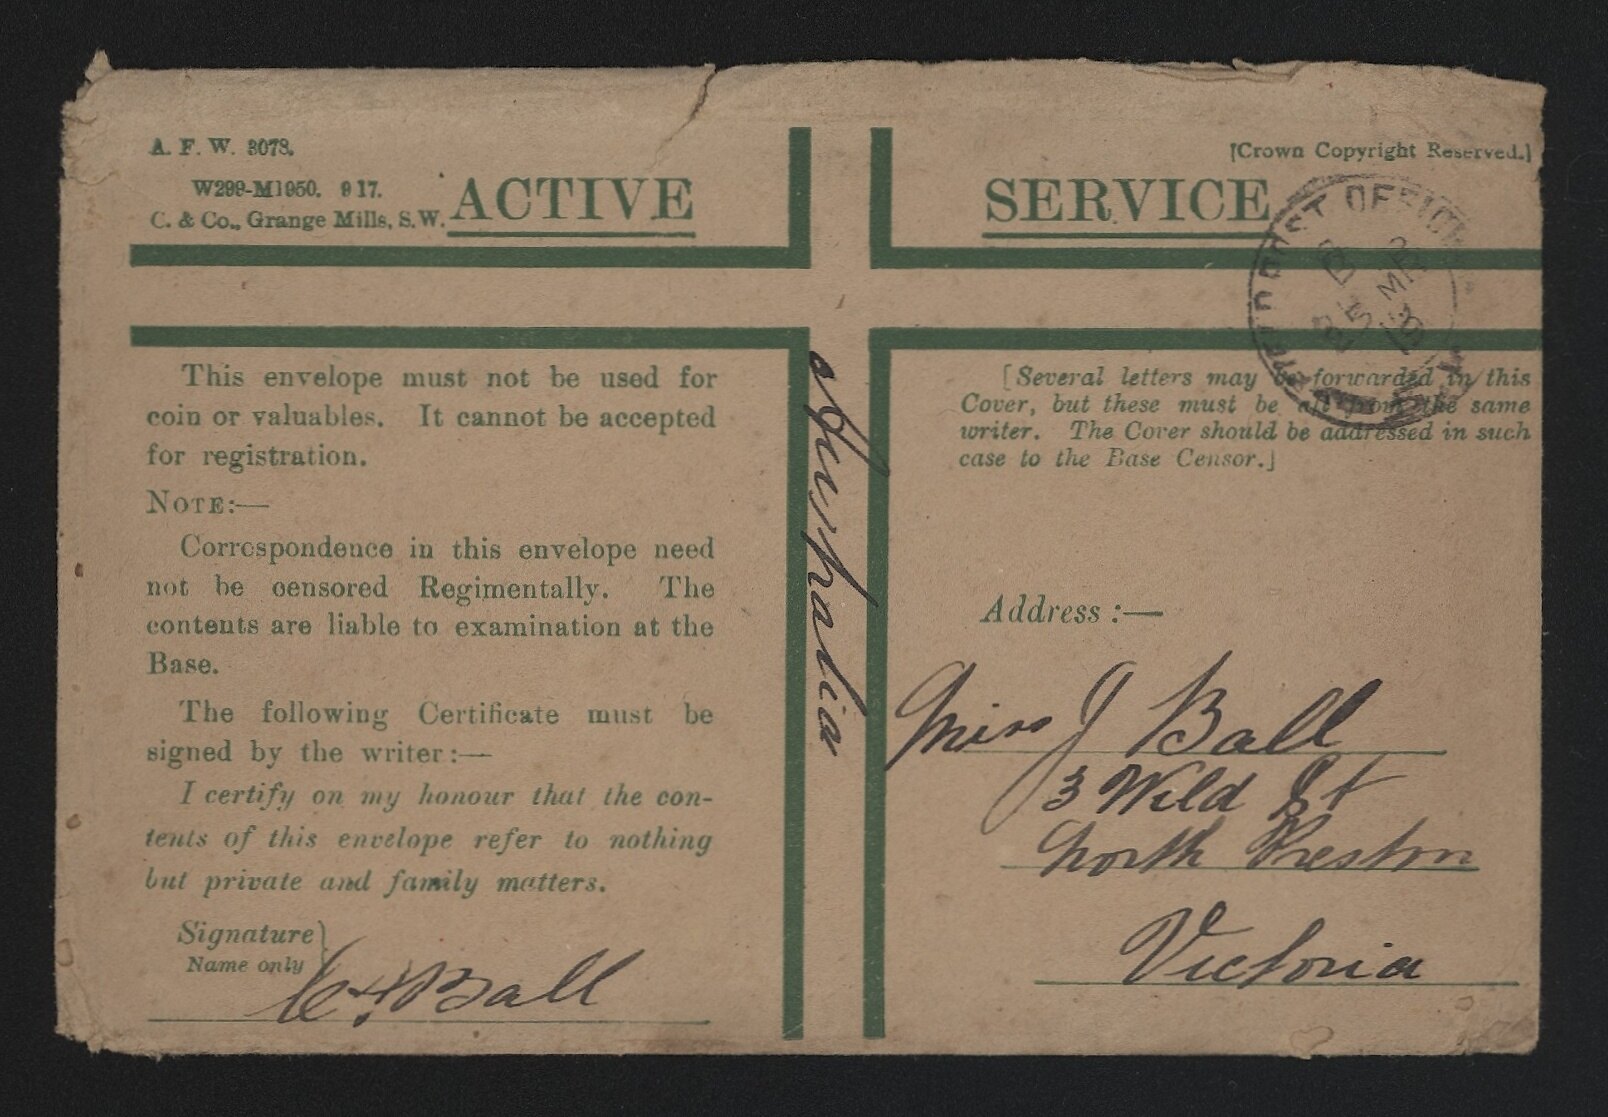 A. F. W. 3078.
W299-M1950. 9 17.
C. & Co., Grange Mills, S.W.
ACTIVE SERVICE
[Crown Copyright Reserved.]
POST OFFICE
D
MR
18
This envelope must not be used for
coin or valuables. It cannot be accepted
for registration.
NOTE:—
Correspondence in this envelope need
not be censored Regimentally. The
contents are liable to examination at the
Base.
The following Certificate must be
signed by the writer:—
I certify on my honour that the con-
tents of this envelope refer to nothing
but private and family matters.
Signature
Name only
Ball
Australia
[Several letters may be forwarded in this
Cover, but these must be all from the same
writer. The Cover should be addressed in such
case to the Base Censor.]
Address :—
Miss J Ball
3 Wild St
North Preston
Victoria